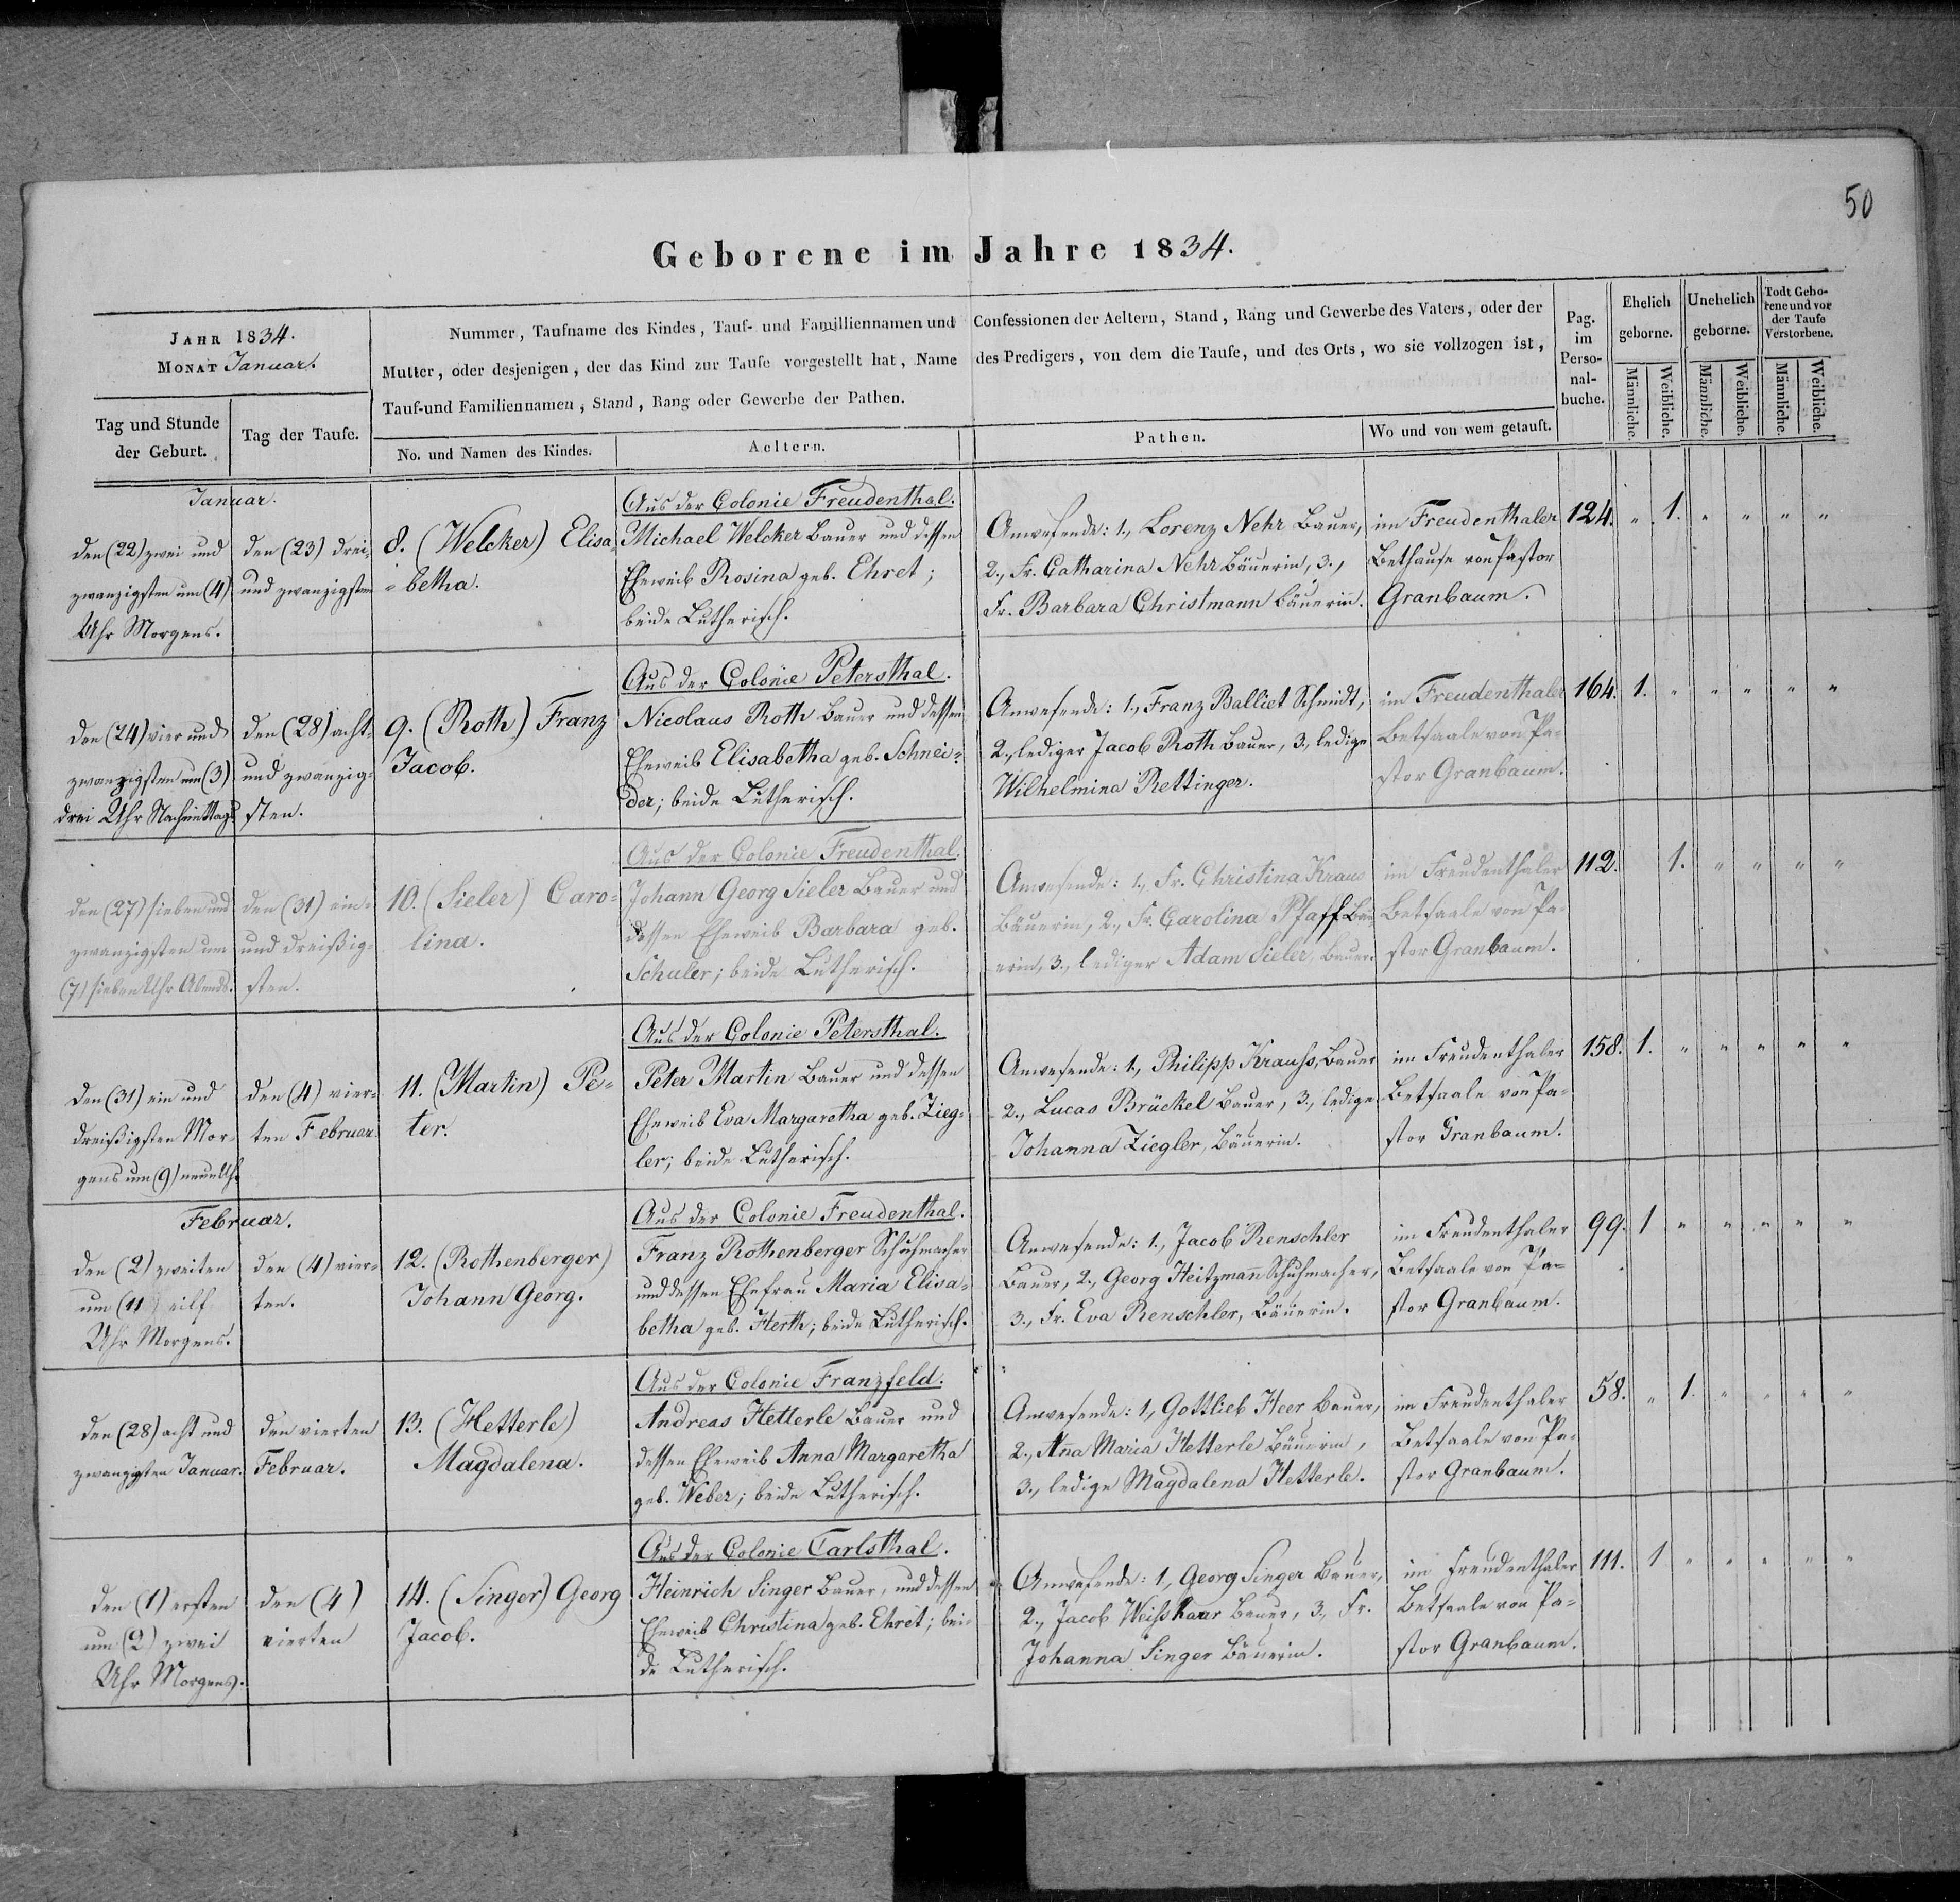 50
Geborene im Jahre 1834.
JAHR 1834.
MONAT Januar.
Tag und Stunde
der Geburt.
Tag der Taufe.
Nummer, Taufname des Kindes, Tauf- und Familliennamen und Confessionen der Aeltern, Stand, Rang und Gewerbe des Vaters, oder der
Mutter, oder desjenigen, der das Kind zur Taufe vorgestellt hat, Name des Predigers, von dem die Taufe, und des Orts, wo sie vollzogen ist,
Tauf-und Familiennamen, Stand, Rang oder Gewerbe der Pathen.
No. und Namen des Kindes.
Aeltern.
Pathen.
Wo und von wem getauft.
Pag.
im
Perso-
nal-
buche.
Ehelich
geborne.
Unehelich
geborne.
Todt Gebo-
rene und vor
der Taufe
Verstorbene.
Männliche.
Weibliche.
Männliche.
Weibliche.
Männliche.
Weibliche.
Januar.
den (22) zwei und
zwanzigsten um (4)
Uhr Morgens.
den (23) drei
und zwanzigsten
8. (Welcker) Elisa-
=betha.
Aus der Colonie Freudenthal.
Michael Welcker Bauer und dessen
Eheweib Rosina geb. Ehret;
beide Lutherisch.
Anwesende: 1., Lorenz Nehr Bauer,
2., Fr. Catharina Nehr Bäuerin, 3.,
Fr. Barbara Christmann Bäuerin.
im Freudenthaler
Bethause von Pastor
Granbaum.
124. " 1. " " " "
den (24) vier und
zwanzigsten um (3)
drei Uhr Nachmittags
den (28) acht-
und zwanzig-
sten.
9. (Roth) Franz
Jacob.
Aus der Colonie Petersthal.
Nicolaus Roth Bauer und dessen
Eheweib Elisabetha geb. Schnei-
der; beide Lutherisch.
Anwesende: 1., Franz Balliet Schmidt,
2., lediger Jacob Roth Bauer, 3., ledige
Wilhelmina Rettinger.
im Freudenthaler
Betsaale von Pa-
stor Granbaum.
164. 1. " " " " "
den (27) sieben und
zwanzigsten um
(7) sieben Uhr Abends.
den (31) ein-
und dreißig-
sten.
10. (Sieler) Caro-
lina.
Aus der Colonie Freudenthal.
Johann Georg Sieler Bauer und
dessen Eheweib Barbara geb.
Schuler; beide Lutherisch.
Anwesende: 1., Fr. Christina Kraus
Bäuerin, 2., Fr. Carolina Pfaff Bäu-
erin, 3., lediger Adam Sieler, Bauer.
im Freudenthaler
Betsaale von Pa-
stor Granbaum.
112. 1. " " " "
den (31) ein und
dreißigsten Mor-
gens um (9) neun Uhr
den (4) vier-
ten Februar.
11. (Martin) Pe-
ter.
Aus der Colonie Petersthal.
Peter Martin Bauer und dessen
Eheweib Eva Margaretha geb. Zieg-
ler; beide Lutherisch.
Anwesende: 1., Philipp Krauß, Bauer
2., Lucas Brückel Bauer, 3., ledige
Johanna Ziegler, Bäuerin.
im Freudenthaler
Betsaale von Pa-
stor Granbaum.
158. 1. " " " " "
Februar.
den (2) zweiten
um (11) eilf
Uhr Morgens.
den (4) vier-
ten.
12. (Rothenberger)
Johann Georg.
Aus der Colonie Freudenthal.
Franz Rothenberger Schuhmacher
und dessen Ehefrau Maria Elisa-
betha geb. Herth; beide Lutherisch.
Anwesende: 1., Jacob Renschler
Bauer, 2., Georg Heitzmann Schuhmacher,
3., Fr. Eva Renschler, Bäuerin.
im Freudenthaler
Betsaale von Pa-
stor Granbaum.
99. 1 " " " " "
den (28) acht und
zwanzigsten Januar.
den vierten
Februar.
13. (Hetterle)
Magdalena.
Aus der Colonie Franzfeld.
Andreas Hetterle Bauer und
dessen Eheweib Anna Margaretha
geb. Weber; beide Lutherisch.
Anwesende: 1., Gottlieb Heer Bauer,
2., Anna Maria Hetterle Bäuerin,
3., ledige Magdalena Hetterle.
im Freudenthaler
Betsaale von Pa-
stor Granbaum.
58. " 1. " " " "
den (1) ersten
um (2) zwei
Uhr Morgens.
den (4)
vierten
14. (Singer) Georg
Jacob.
Aus der Colonie Carlsthal.
Heinrich Singer Bauer, und dessen
Eheweib Christina geb. Ehret; bei-
de Lutherisch.
Anwesende: 1., Georg Singer Bauer,
2., Jacob Weißhaar Bauer, 3., Fr.
Johanna Singer Bäuerin.
im Freudenthaler
Betsaale von Pa-
stor Granbaum.
111. 1 " " " " "